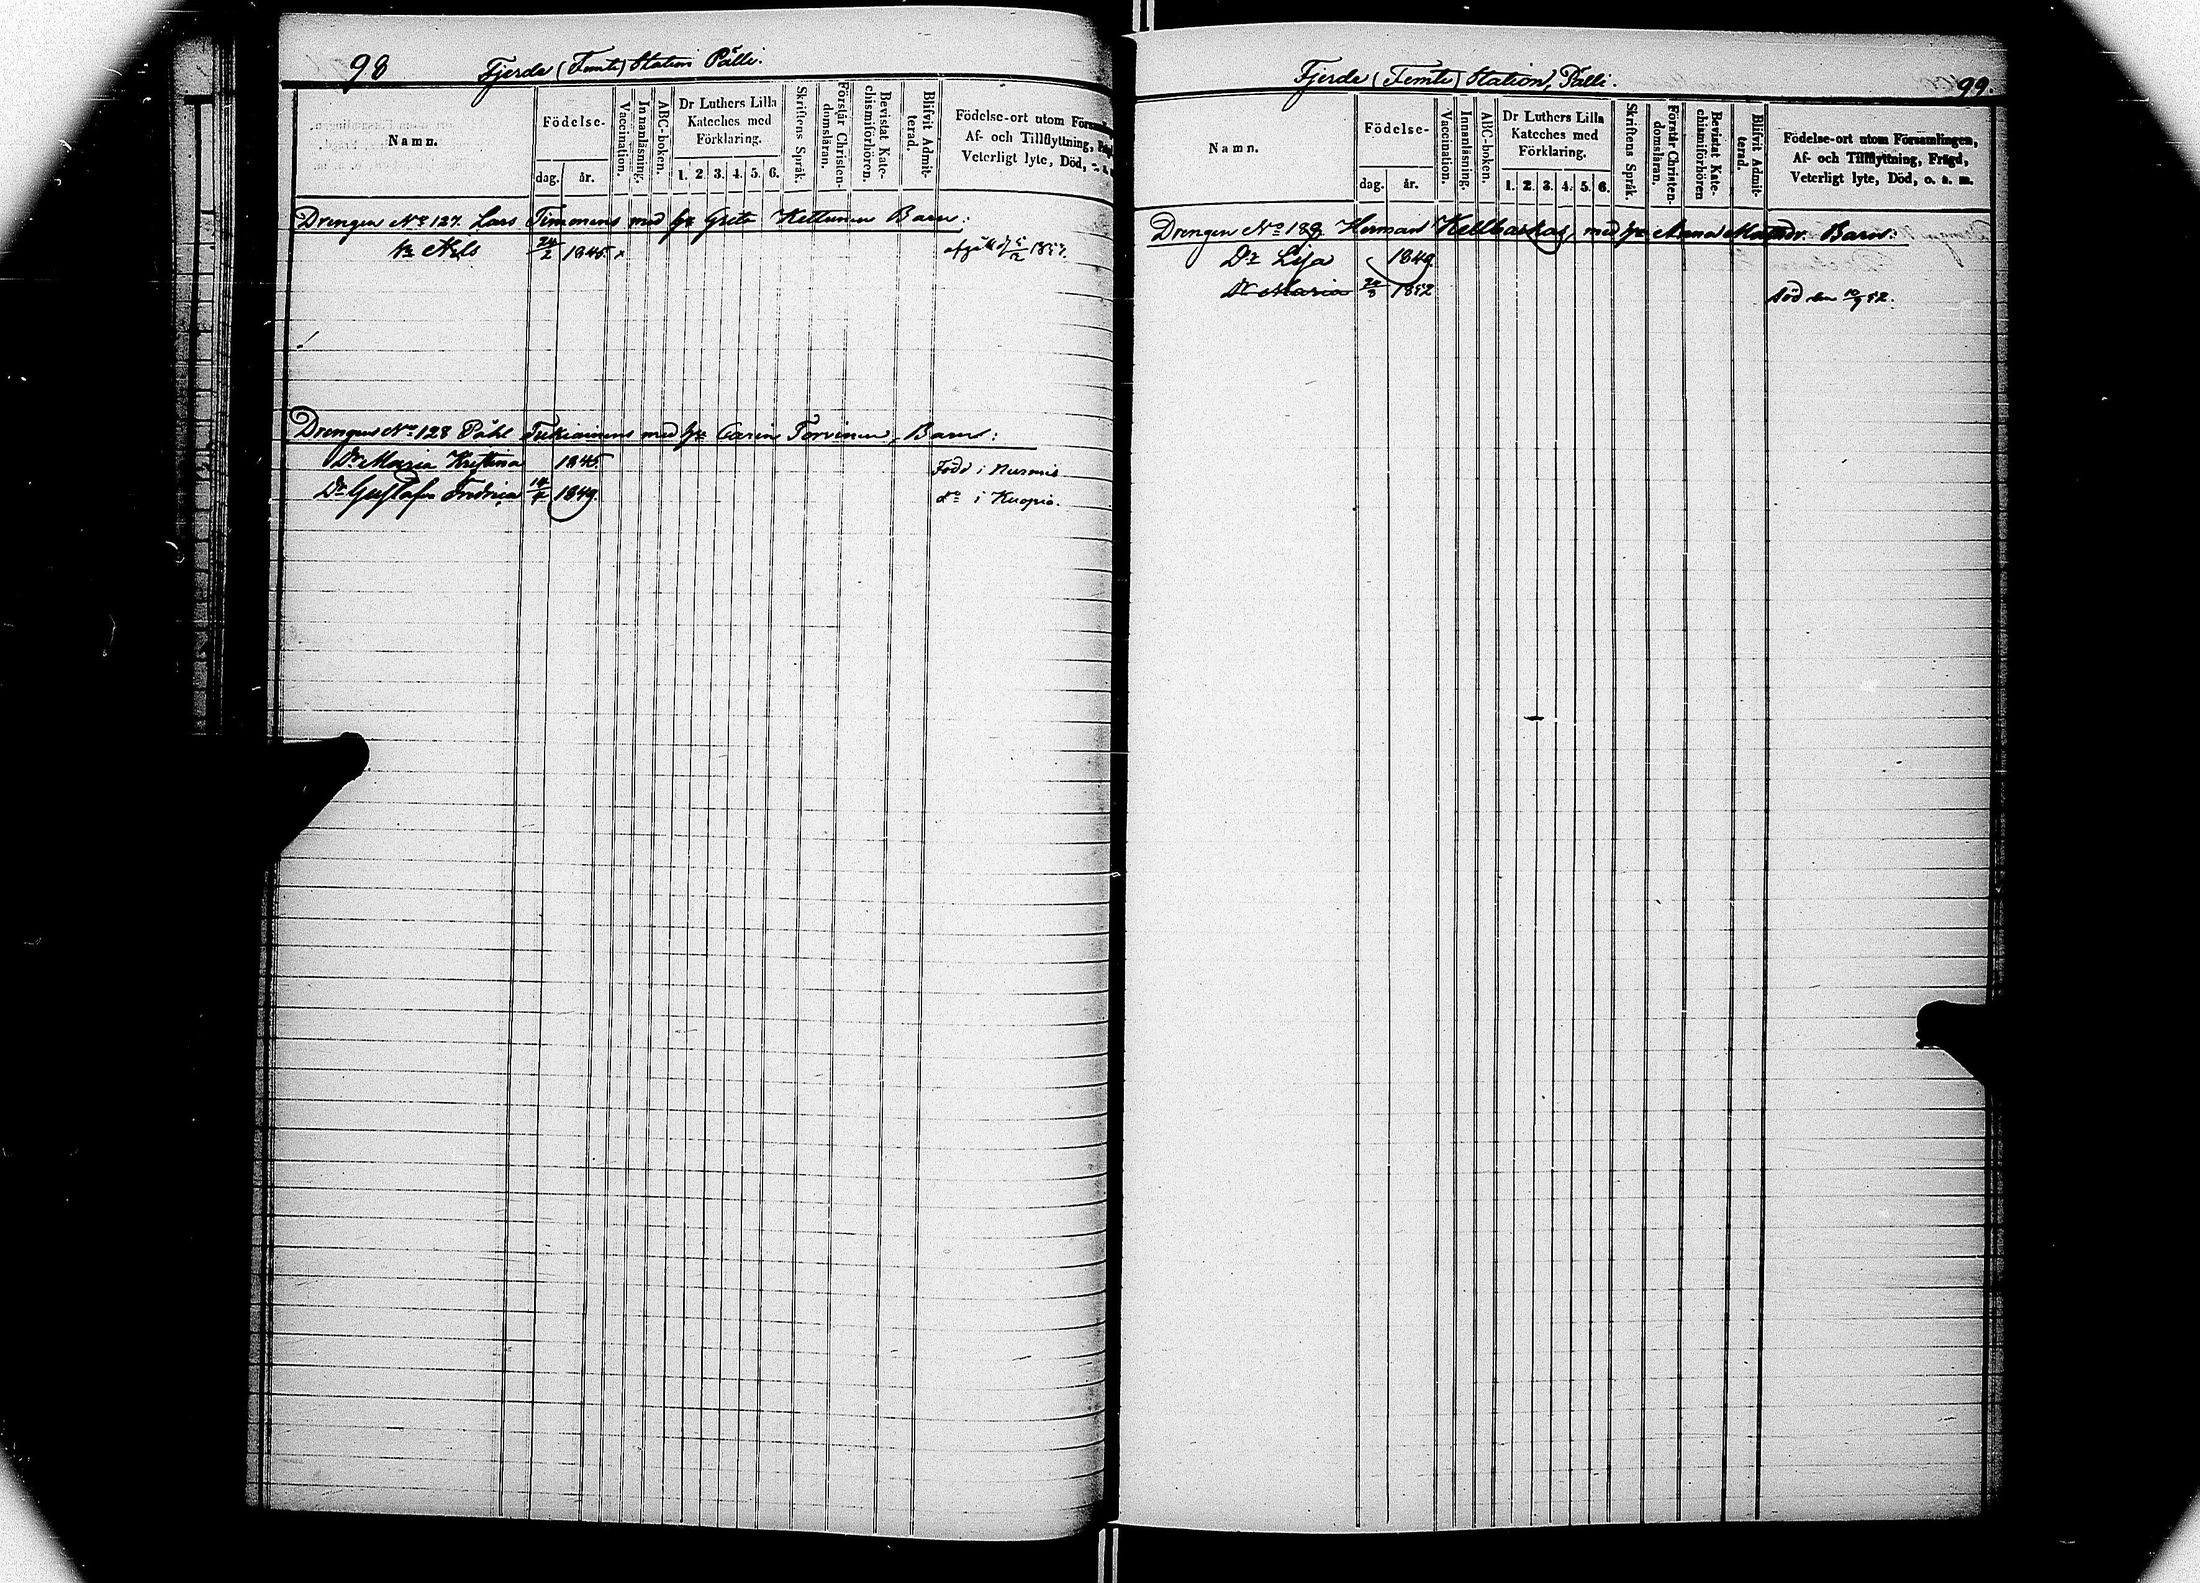 98
Fjerde (Femte) Station Pälli.
Namn.
Födelse-
dag. år.
Vaccination.
Innanläsning.
ABC-boken.
Dr Luthers Lilla
Kateches med
Förklaring.
1. 2. 3. 4. 5. 6.
Skriftens Språk.
Förstår Christen-
domsläran.
Bevistat Kate-
chismiförhören.
Blifvit Admit-
terad.
Födelse-ort utom
Af- och Tillflyttning,
Veterligt lyte, Död,
Drengen No 127. Lars Timonens med h Greta Kettunen Barn:
Nils 24/2 1845.
1857.
Drengens No 128 Påhl med h Carin Torvinen Barn:
Dr Maria Kristina 1845 Född i Nurmis
Dr Gustafva Fredrica 1849 do i Kuopio.
Fjerde (Femte) Station, Pälli.
99.
Namn.
Födelse-
dag. år.
Vaccination.
Innanläsning.
ABC-boken.
Dr Luthers Lilla
Kateches med
Förklaring.
1. 2. 3. 4. 5. 6.
Skriftens Språk.
Förstår Christen-
domsläran.
Bevistat Kate-
chismiförhören
Blifvit Admit-
terad.
Födelse-ort utom Församlingen,
Af- och Tillflyttning, Frägd,
Veterligt lyte, Död, o. s. m.
Drengen No Herman med h Anna Barn:
Dr Lisa 1849
Dr Maria 1852 död den 10/9 52.